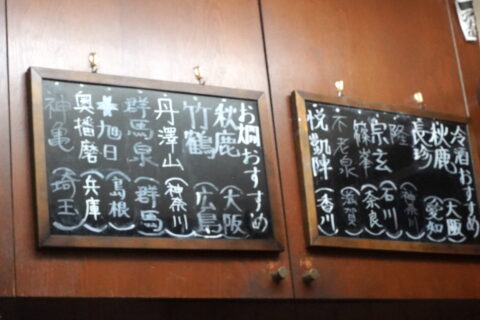 お燗おすすめ
秋鹿（大阪）
竹鶴（広島）
丹澤山（神奈川）
群馬泉（群馬）
旭日（島根）
奥播磨（兵庫）
神亀（埼玉）
冷酒おすすめ
秋鹿（大阪）
長珍（愛知）
隆（神奈川）
宗玄（石川）
篠峯（奈良）
不老泉（滋賀）
悦凱陣（香川）